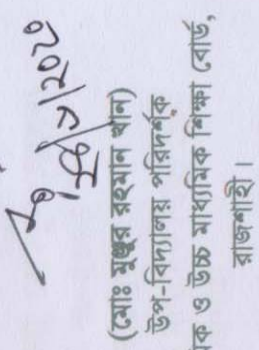 (মোঃ মুঞ্জুর রহমান খান)
উপ-বিদ্যালয় পরিদর্শক
ক ও উচ্চ মাধ্যমিক শিক্ষা বোর্ড,
রাজশাহী।